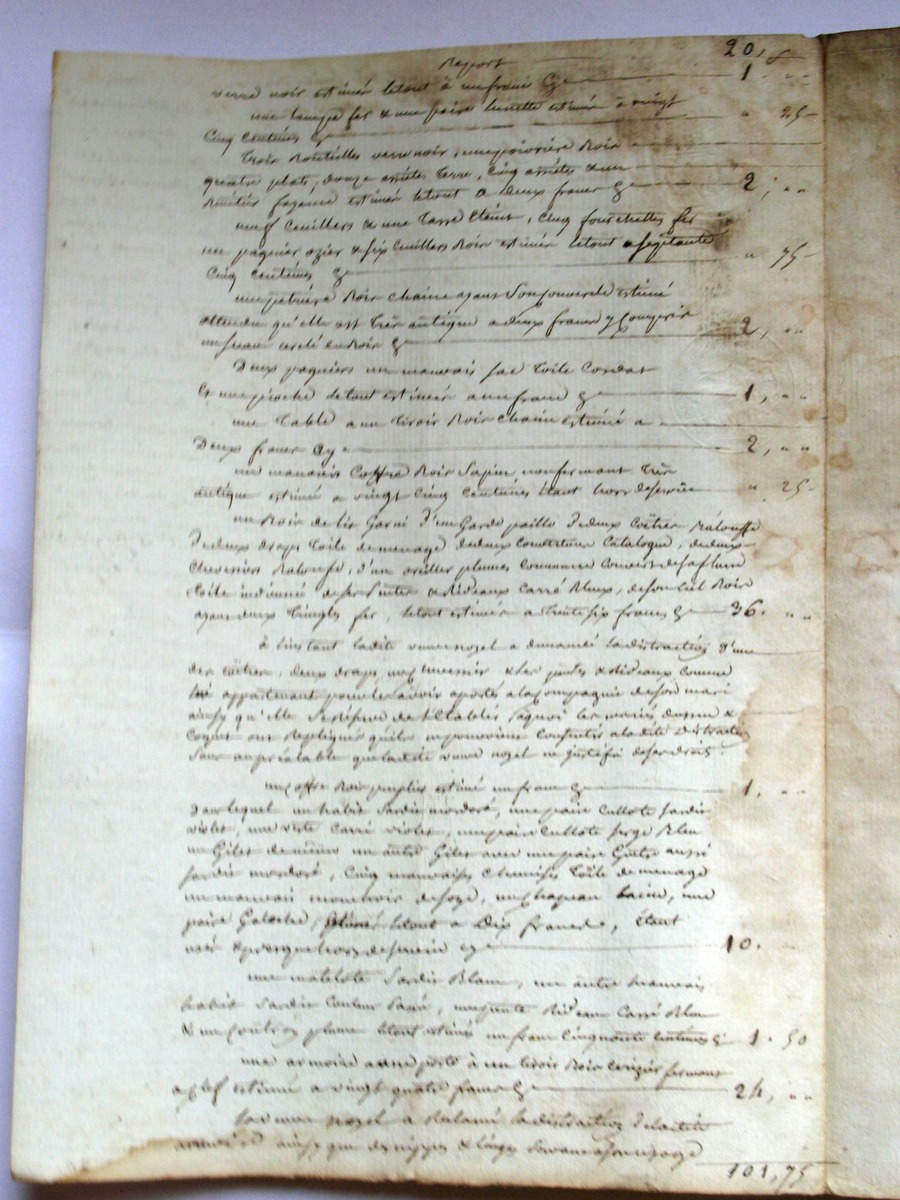 Report 20, 8
verre noir estimé letout à un franc Cy 1. ""
une lampe fer & une paire lunette estimée à vingt
Cinq centimes Cy " 25
trois Bouteilles verre noir, une Bois
quatre plats, douze assiètes terre, cinq assiètes & un
fayance estimé letout a Deux francs Cy 2, ""
neuf Cuillers & une tasse Etaint, Cinq fourchettes fer
un pagnier ozier & six Cuillers Bois estimé letout a septante
Cinq Centimes Cy " 75
une petrière Bois chaine ayant son Couvercle estimé
attendu qu'elle est très antique a deux francs y Compris
un seau cerclé en Bois Cy 2, ""
Deux pagniers un mauvais sac toile Cordat
& une pioche letout estimé a un franc Cy 1, ""
une table a un tiroir Bois chaine estimé a
Deux francs Cy 2, ""
un mauvais Coffre Bois Sapin non fermant très
antique estimé a vingt Cinq Centimes étant hors de service " 25
un Bois de lit Garni d'un Garde paille de deux Coëtres Balouffe
de deux draps toile de menage de deux Couvertures Catalogne, de deux
Chevessiers Balouffe, d'un oreiller plumes Couvert de sa flaine
toile indienne de ses pentes & Rideaux Carré Bleux, de son Ciel Bois
ayant deux tringles fer, letout estimé a trente six francs Cy 36. ""
à linstant ladite veuve nozel a demandé la distraction d'une
des Coëtres, deux draps un Chevessier & les pentes & Rideaux comme
lui appartenant pour les avoir aportés a la Compagnie de son mari
ainsy qu'elle Se Réserve de l'Etablir, a quoi les mariés &
Coquet ont Repliqué qu'ils ne pouvoient Consentir a ladite Distraction
sans au préalable que ladite veuve nozel ne justifia de ses droits.
un Coffre Bois estimé un franc Cy 1. ""
Dans lequel un habit Sardis mordoré, une paire Cullote Sardis
violet, une veste Carré violet, une paire Cullote Serge Bleu
un Gilet de même un autre Gilet avec une paire Guêtre aussi
Sardis mordoré, Cinq mauvaises chemises toile de menage
un mauvais mouchoir de soye, un chapeau laine, une
paire Galoches, estimé letout a Dix francs, étant
usé & presque hors de service Cy 10.
une matelote Sardis Blanc, un autre mauvais
habit Sardis Couleur une pente Rideau Carré Bleu
& un Coutron plume letout estimé un franc Cinquante Centimes Cy 1. 50
une armoire a une porte & un tiroir Bois Cerizier fermant
a Clef estimé a vingt quatre francs Cy 24, ""
la veuve nozel a Reclamé la distraction de ladite
armoire ainsy que des nippes & linges Servant a son usage
101, 75